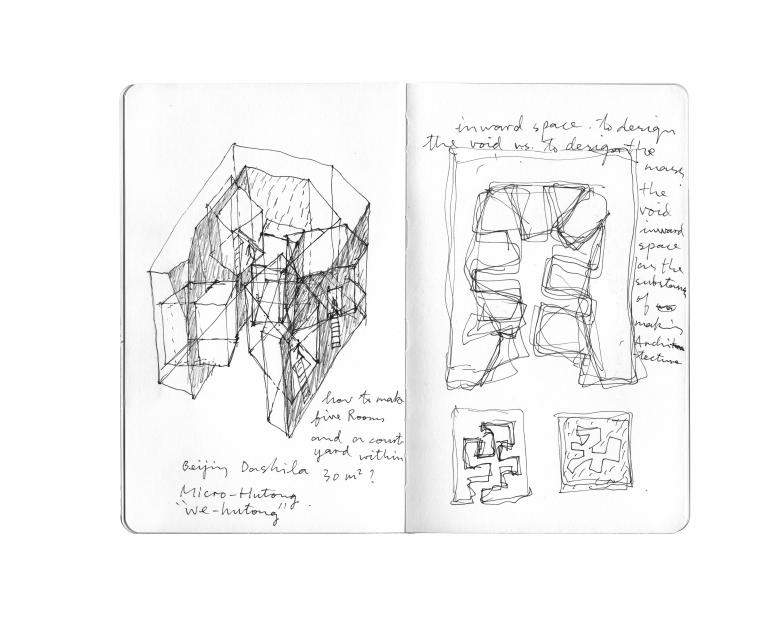 how to make
five Rooms
and a court
yard within
30 m²?
Beijin Dashila
Micro-Hutong
"We-hutong"
inward space. to design
the void vs. to design the
mass,
the
void
inward
space
as the
substance
of
makin
Archi
tecture